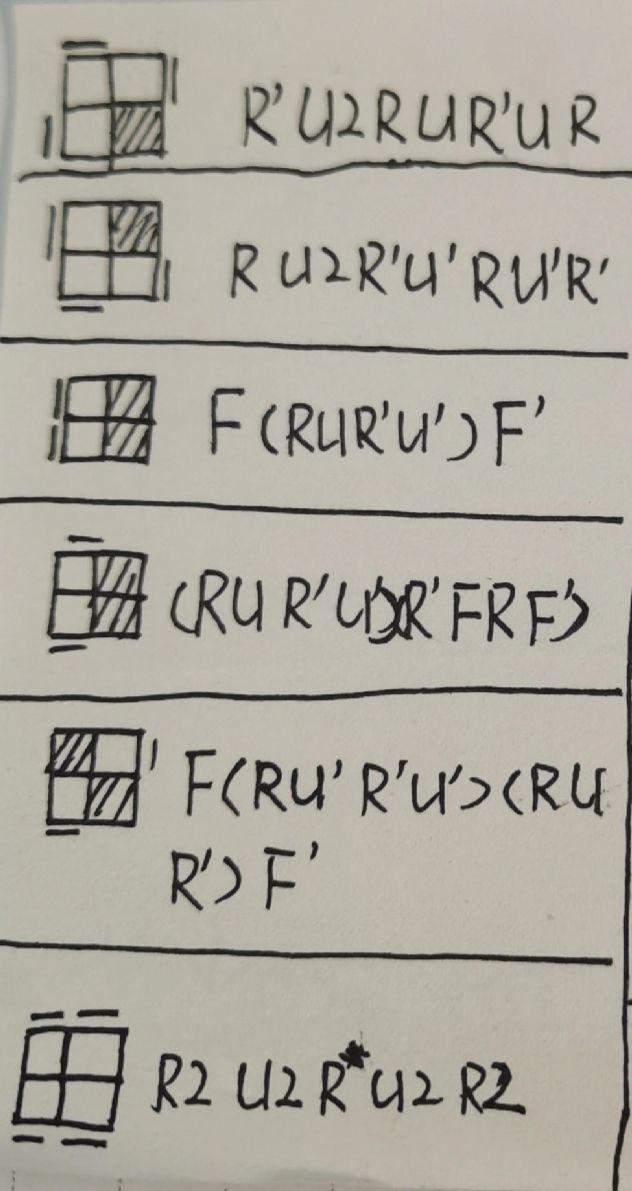 R'U2RUR'UR
RU2R'U'RU'R'
F(RUR'U')F'
(RUR'U')(R'FRF')
F(RU'R'U')(RU
R')F'
R2U2RU2R2